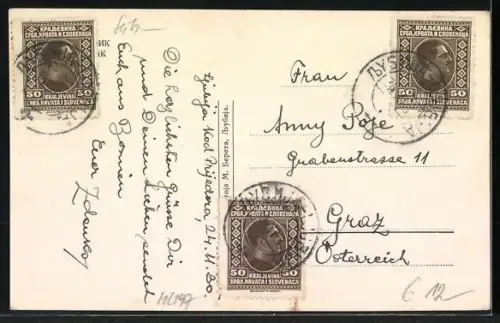 Ljubija kod Prijedora, 24.11.30.
Die herzlichsten Grüsse Dir
und Deinen Lieben sendet
Euch aus Bosnien
Euer Zdenko
Frau
Anny Poje
Grabenstrasse 11
Graz
Österreich
КРАЉЕВИНА
СРБА, ХРВАТА И СЛОВЕНАЦА
50 50
KRALJEVINA
SRBA, HRVATA I SLOVENACA
КРАЉЕВИНА
СРБА, ХРВАТА И СЛОВЕНАЦА
50 50
KRALJEVINA
SRBA, HRVATA I SLOVENACA
КРАЉЕВИНА
СРБА, ХРВАТА И СЛОВЕНАЦА
50 50
KRALJEVINA
SRBA, HRVATA I SLOVENACA
М. Берета, Љубија.
€ 12